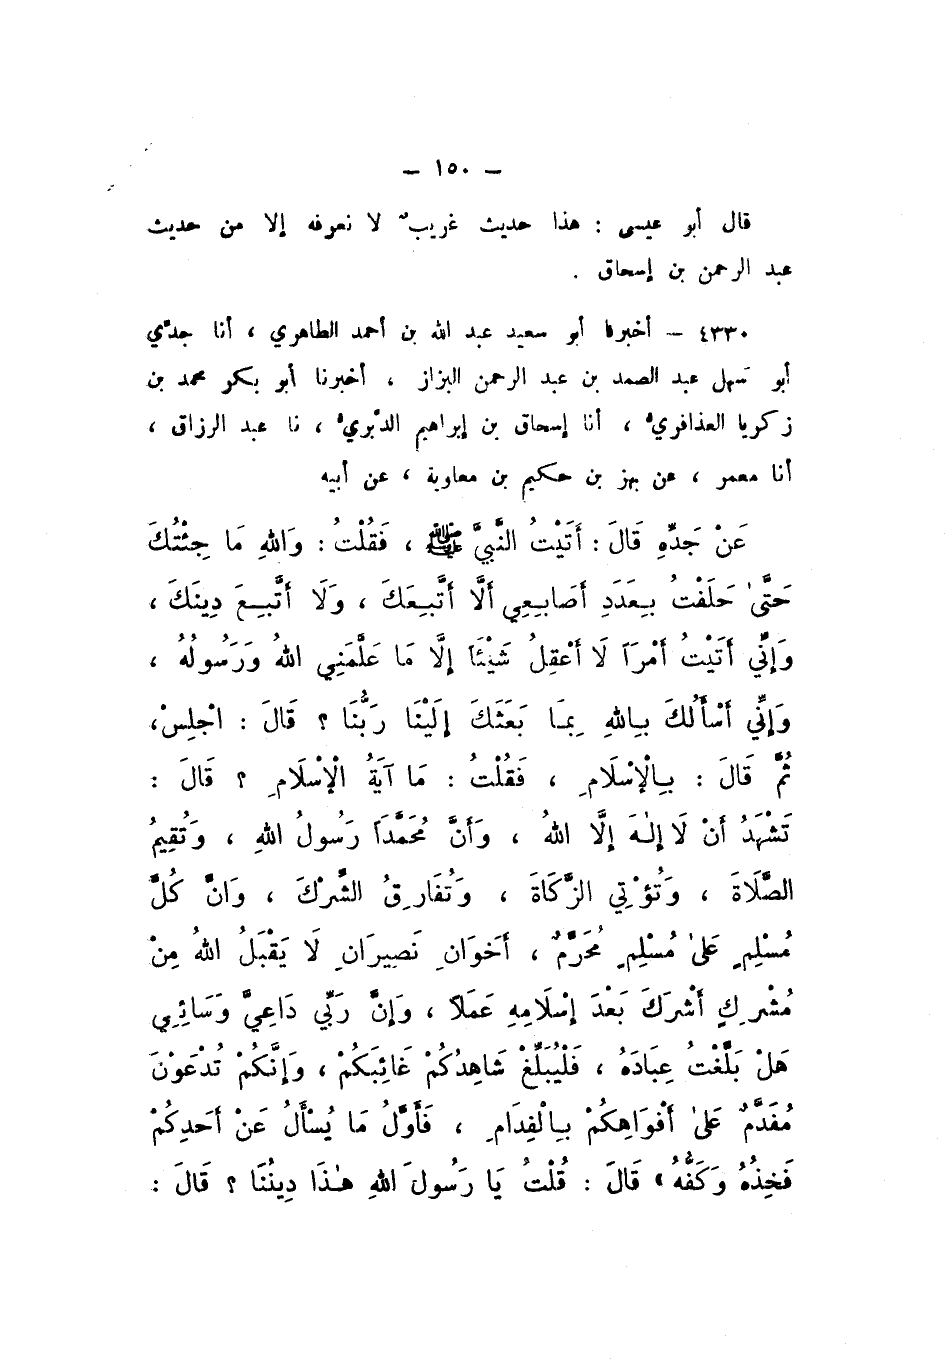 – ١٥٠ –
قال أبو عيسى : هذا حديث غريبٌ لا نعرفه إلا من حديث
عبد الرحمن بن إسحاق .
٤٣٣٠ – أخبرنا أبو سعيد عبد الله بن أحمد الطاهري ، أنا جدّي
أبو سهل عبد الصمد بن عبد الرحمن البزاز ، أخبرنا أبو بكر محمد بن
زكريا العذافريُّ ، أنا إسحاق بن إبراهيم الدَّبريُّ ، نا عبد الرزاق ،
أنا معمر ، عن بهز بن حكيم بن معاوية ، عن أبيه
عَنْ جَدِّهِ قَالَ : أَتَيْتُ النَّبِيَّ ﷺ ، فَقُلْتُ : وَاللهِ مَا جِئْتُكَ
حَتَّىٰ حَلَفْتُ بِعَدَدِ أَصَابِعِي أَلَّا أَتَّبِعَكَ ، وَلَا أَتَّبِعَ دِينَكَ ،
وَإِنِّي أَتَيْتُ أَمْرَاً لَا أَعْقِلُ شَيْئَاً إِلَّا مَا عَلَّمَنِي اللهُ وَرَسُولُهُ ،
وَإِنِّي أَسْأَلُكَ بِاللهِ بِمَا بَعَثَكَ إِلَيْنَا رَبُّنَا ؟ قَالَ : اجْلِسْ،
ثُمَّ قَالَ : بِالْإِسْلَامِ ، فَقُلْتُ : مَا آيَةُ الْإِسْلَامِ ؟ قَالَ :
تَشْهَدُ أَنْ لَا إِلٰهَ إِلَّا اللهُ ، وَأَنَّ مُحَمَّدَاً رَسُولُ اللهِ ، وَتُقِيمُ
الصَّلَاةَ ، وَتُؤْتِي الزَّكَاةَ ، وَتُفَارِقُ الشِّرْكَ ، وَأَنَّ كُلَّ
مُسْلِمٍ عَلىٰ مُسْلِمٍ مُحَرَّمٌ ، أَخَوَانِ نَصِيرَانِ لَا يَقْبَلُ اللهُ مِنْ
مُشْرِكٍ أَشْرَكَ بَعْدَ إِسْلَامِهِ عَمَلاً ، وَإِنَّ رَبِّي دَاعِيَّ وَسَائِلِي
هَلْ بَلَّغْتُ عِبَادَهُ ، فَلْيُبَلِّغْ شَاهِدُكُمْ غَائِبَكُمْ ، وَإِنَّكُمْ تُدْعَوْنَ
مُفَدَّمٌ عَلىٰ أَفْوَاهِكُمْ بِالْفِدَامِ ، فَأَوَّلُ مَا يُسْأَلُ عَنْ أَحَدِكُمْ
فَخِذُهُ وَكَفُّهُ » قَالَ : قُلْتُ يَا رَسُولَ اللهِ هٰذَا دِينُنَا ؟ قَالَ :